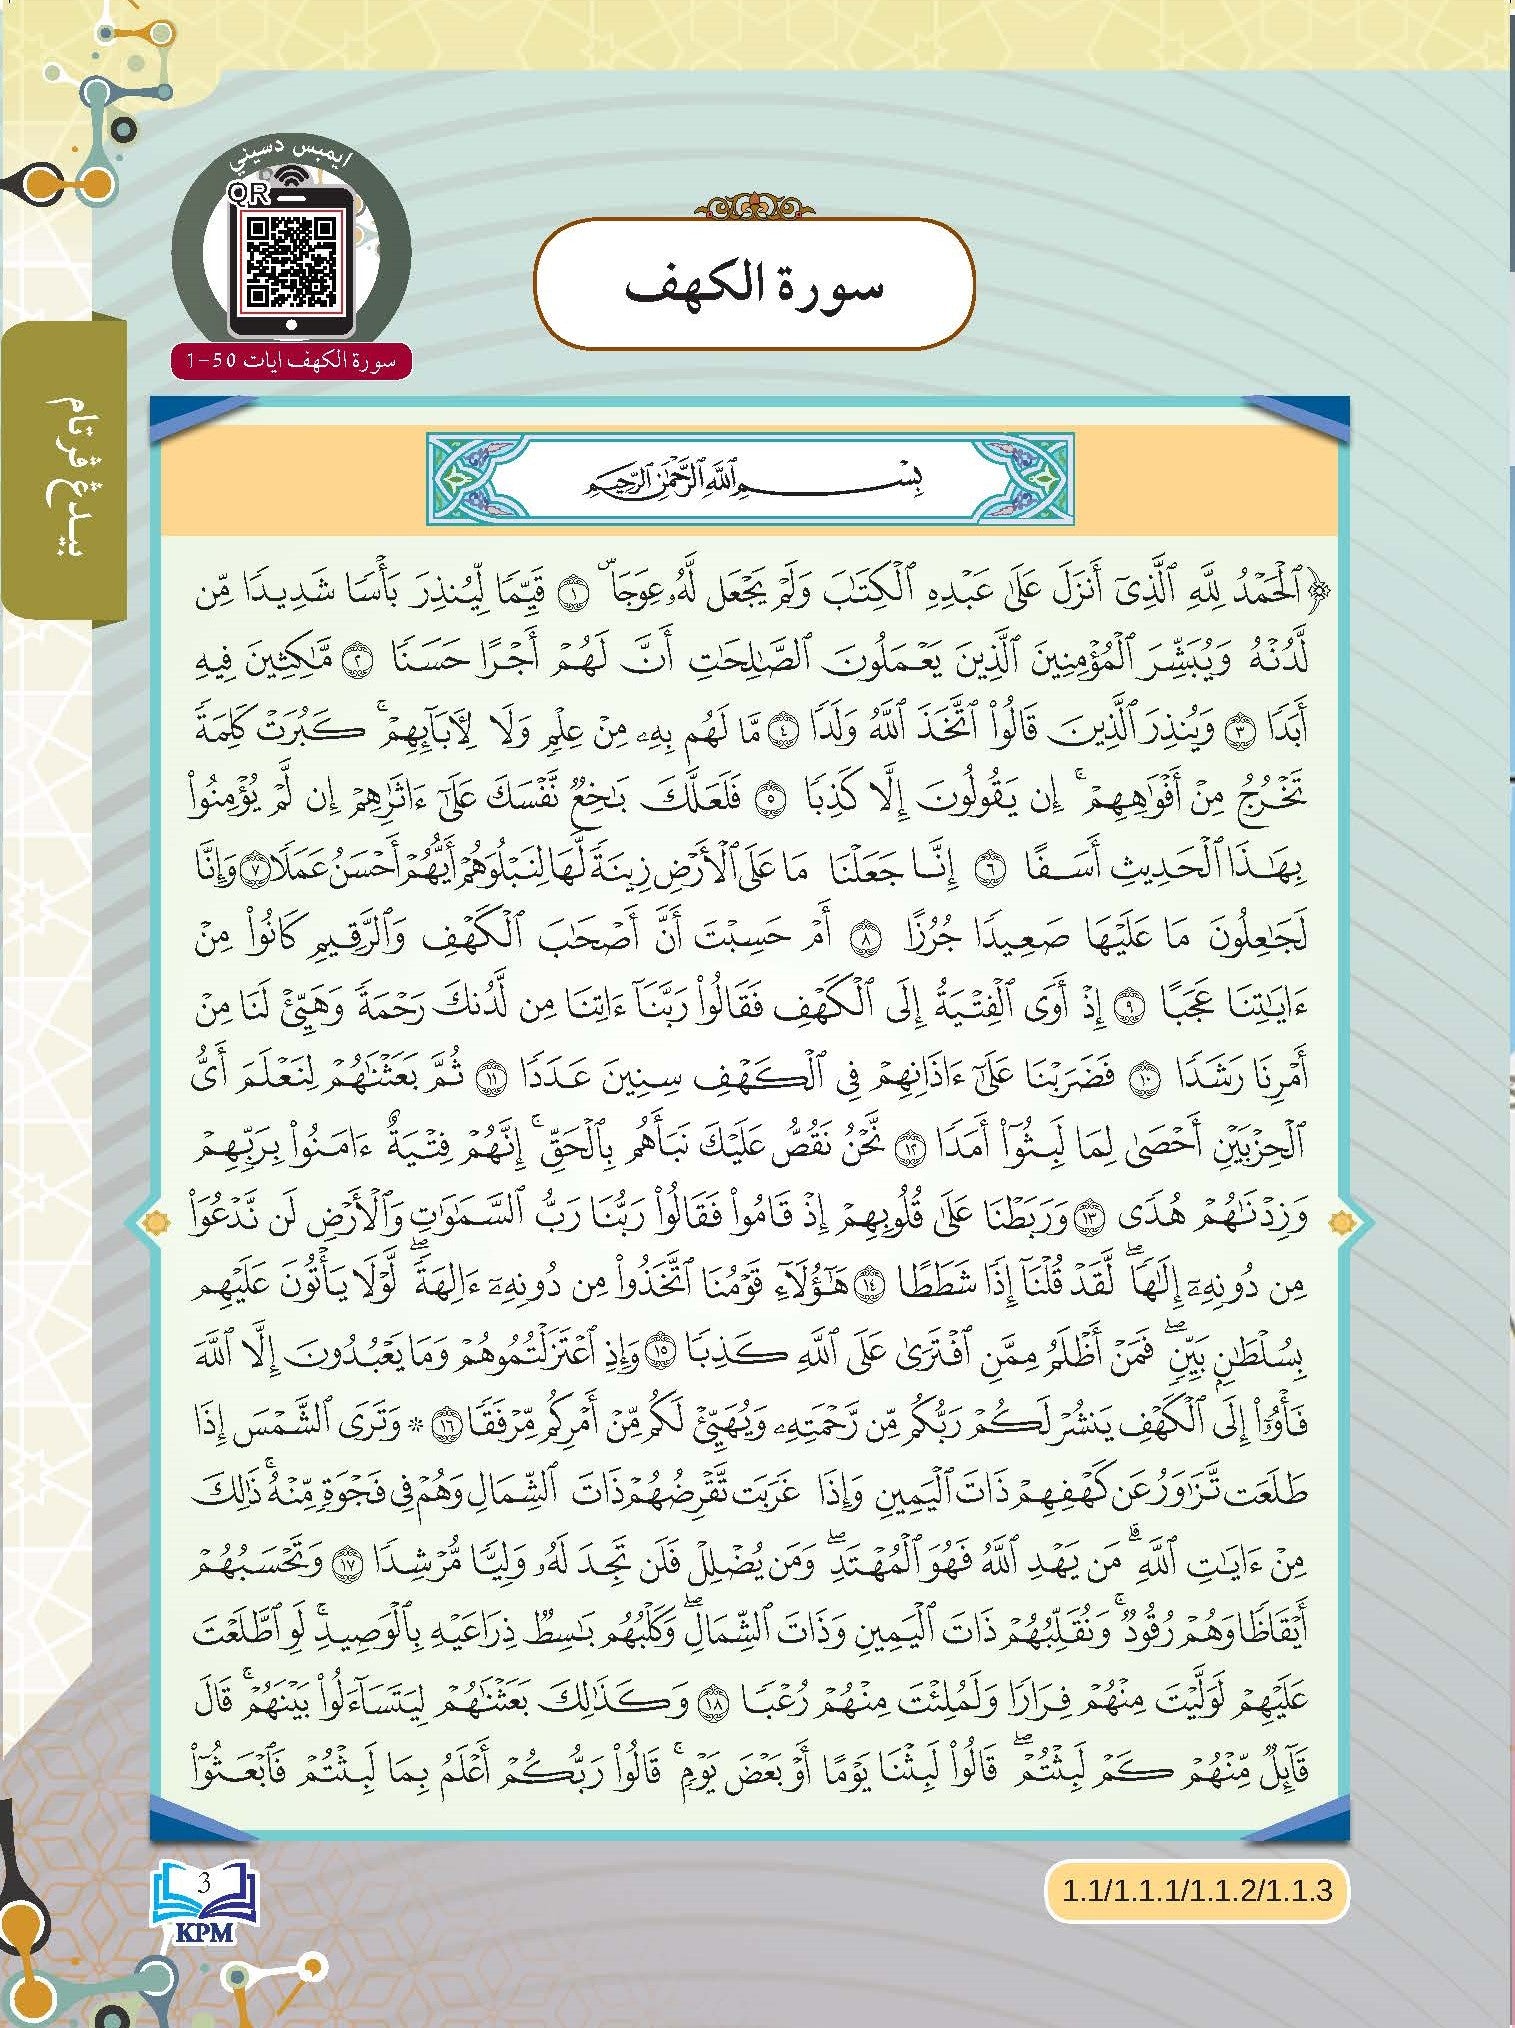 ايمبس دسيني
QR
سورة الكهف ايات 50-1
سورة الكهف
بيدڠ ڤرتام
بِسْمِ ٱللَّهِ ٱلرَّحْمَٰنِ ٱلرَّحِيمِ
ٱلْحَمْدُ لِلَّهِ ٱلَّذِىٓ أَنزَلَ عَلَىٰ عَبْدِهِ ٱلْكِتَٰبَ وَلَمْ يَجْعَل لَّهُۥ عِوَجَاۜ ١ قَيِّمًا لِّيُنذِرَ بَأْسًا شَدِيدًا مِّن
لَّدُنْهُ وَيُبَشِّرَ ٱلْمُؤْمِنِينَ ٱلَّذِينَ يَعْمَلُونَ ٱلصَّٰلِحَٰتِ أَنَّ لَهُمْ أَجْرًا حَسَنًا ٢ مَّٰكِثِينَ فِيهِ
أَبَدًا ٣ وَيُنذِرَ ٱلَّذِينَ قَالُوا۟ ٱتَّخَذَ ٱللَّهُ وَلَدًا ٤ مَّا لَهُم بِهِۦ مِنْ عِلْمٍ وَلَا لِـَٔابَآئِهِمْ ۚ كَبُرَتْ كَلِمَةً
تَخْرُجُ مِنْ أَفْوَٰهِهِمْ ۚ إِن يَقُولُونَ إِلَّا كَذِبًا ٥ فَلَعَلَّكَ بَٰخِعٌ نَّفْسَكَ عَلَىٰٓ ءَاثَٰرِهِمْ إِن لَّمْ يُؤْمِنُوا۟
بِهَٰذَا ٱلْحَدِيثِ أَسَفًا ٦ إِنَّا جَعَلْنَا مَا عَلَى ٱلْأَرْضِ زِينَةً لَّهَا لِنَبْلُوَهُمْ أَيُّهُمْ أَحْسَنُ عَمَلًا ٧ وَإِنَّا
لَجَٰعِلُونَ مَا عَلَيْهَا صَعِيدًا جُرُزًا ٨ أَمْ حَسِبْتَ أَنَّ أَصْحَٰبَ ٱلْكَهْفِ وَٱلرَّقِيمِ كَانُوا۟ مِنْ
ءَايَٰتِنَا عَجَبًا ٩ إِذْ أَوَى ٱلْفِتْيَةُ إِلَى ٱلْكَهْفِ فَقَالُوا۟ رَبَّنَآ ءَاتِنَا مِن لَّدُنكَ رَحْمَةً وَهَيِّئْ لَنَا مِنْ
أَمْرِنَا رَشَدًا ١٠ فَضَرَبْنَا عَلَىٰٓ ءَاذَانِهِمْ فِى ٱلْكَهْفِ سِنِينَ عَدَدًا ١١ ثُمَّ بَعَثْنَٰهُمْ لِنَعْلَمَ أَىُّ
ٱلْحِزْبَيْنِ أَحْصَىٰ لِمَا لَبِثُوٓا۟ أَمَدًا ١٢ نَّحْنُ نَقُصُّ عَلَيْكَ نَبَأَهُم بِٱلْحَقِّ ۚ إِنَّهُمْ فِتْيَةٌ ءَامَنُوا۟ بِرَبِّهِمْ
وَزِدْنَٰهُمْ هُدًى ١٣ وَرَبَطْنَا عَلَىٰ قُلُوبِهِمْ إِذْ قَامُوا۟ فَقَالُوا۟ رَبُّنَا رَبُّ ٱلسَّمَٰوَٰتِ وَٱلْأَرْضِ لَن نَّدْعُوَا۟
مِن دُونِهِۦٓ إِلَٰهًا ۖ لَّقَدْ قُلْنَآ إِذًا شَطَطًا ١٤ هَٰٓؤُلَآءِ قَوْمُنَا ٱتَّخَذُوا۟ مِن دُونِهِۦٓ ءَالِهَةً ۖ لَّوْلَا يَأْتُونَ عَلَيْهِم
بِسُلْطَٰنٍۭ بَيِّنٍ ۖ فَمَنْ أَظْلَمُ مِمَّنِ ٱفْتَرَىٰ عَلَى ٱللَّهِ كَذِبًا ١٥ وَإِذِ ٱعْتَزَلْتُمُوهُمْ وَمَا يَعْبُدُونَ إِلَّا ٱللَّهَ
فَأْوُۥٓا۟ إِلَى ٱلْكَهْفِ يَنشُرْ لَكُمْ رَبُّكُم مِّن رَّحْمَتِهِۦ وَيُهَيِّئْ لَكُم مِّنْ أَمْرِكُم مِّرْفَقًا ١٦ * وَتَرَى ٱلشَّمْسَ إِذَا
طَلَعَت تَّزَٰوَرُ عَن كَهْفِهِمْ ذَاتَ ٱلْيَمِينِ وَإِذَا غَرَبَت تَّقْرِضُهُمْ ذَاتَ ٱلشِّمَالِ وَهُمْ فِى فَجْوَةٍ مِّنْهُ ۚ ذَٰلِكَ
مِنْ ءَايَٰتِ ٱللَّهِ ۗ مَن يَهْدِ ٱللَّهُ فَهُوَ ٱلْمُهْتَدِ ۖ وَمَن يُضْلِلْ فَلَن تَجِدَ لَهُۥ وَلِيًّا مُّرْشِدًا ١٧ وَتَحْسَبُهُمْ
أَيْقَاظًا وَهُمْ رُقُودٌ ۚ وَنُقَلِّبُهُمْ ذَاتَ ٱلْيَمِينِ وَذَاتَ ٱلشِّمَالِ ۖ وَكَلْبُهُم بَٰسِطٌ ذِرَاعَيْهِ بِٱلْوَصِيدِ ۚ لَوِ ٱطَّلَعْتَ
عَلَيْهِمْ لَوَلَّيْتَ مِنْهُمْ فِرَارًا وَلَمُلِئْتَ مِنْهُمْ رُعْبًا ١٨ وَكَذَٰلِكَ بَعَثْنَٰهُمْ لِيَتَسَآءَلُوا۟ بَيْنَهُمْ ۚ قَالَ
قَآئِلٌ مِّنْهُمْ كَمْ لَبِثْتُمْ ۖ قَالُوا۟ لَبِثْنَا يَوْمًا أَوْ بَعْضَ يَوْمٍ ۚ قَالُوا۟ رَبُّكُمْ أَعْلَمُ بِمَا لَبِثْتُمْ فَٱبْعَثُوٓا۟
3
KPM
1.1/1.1.1/1.1.2/1.1.3